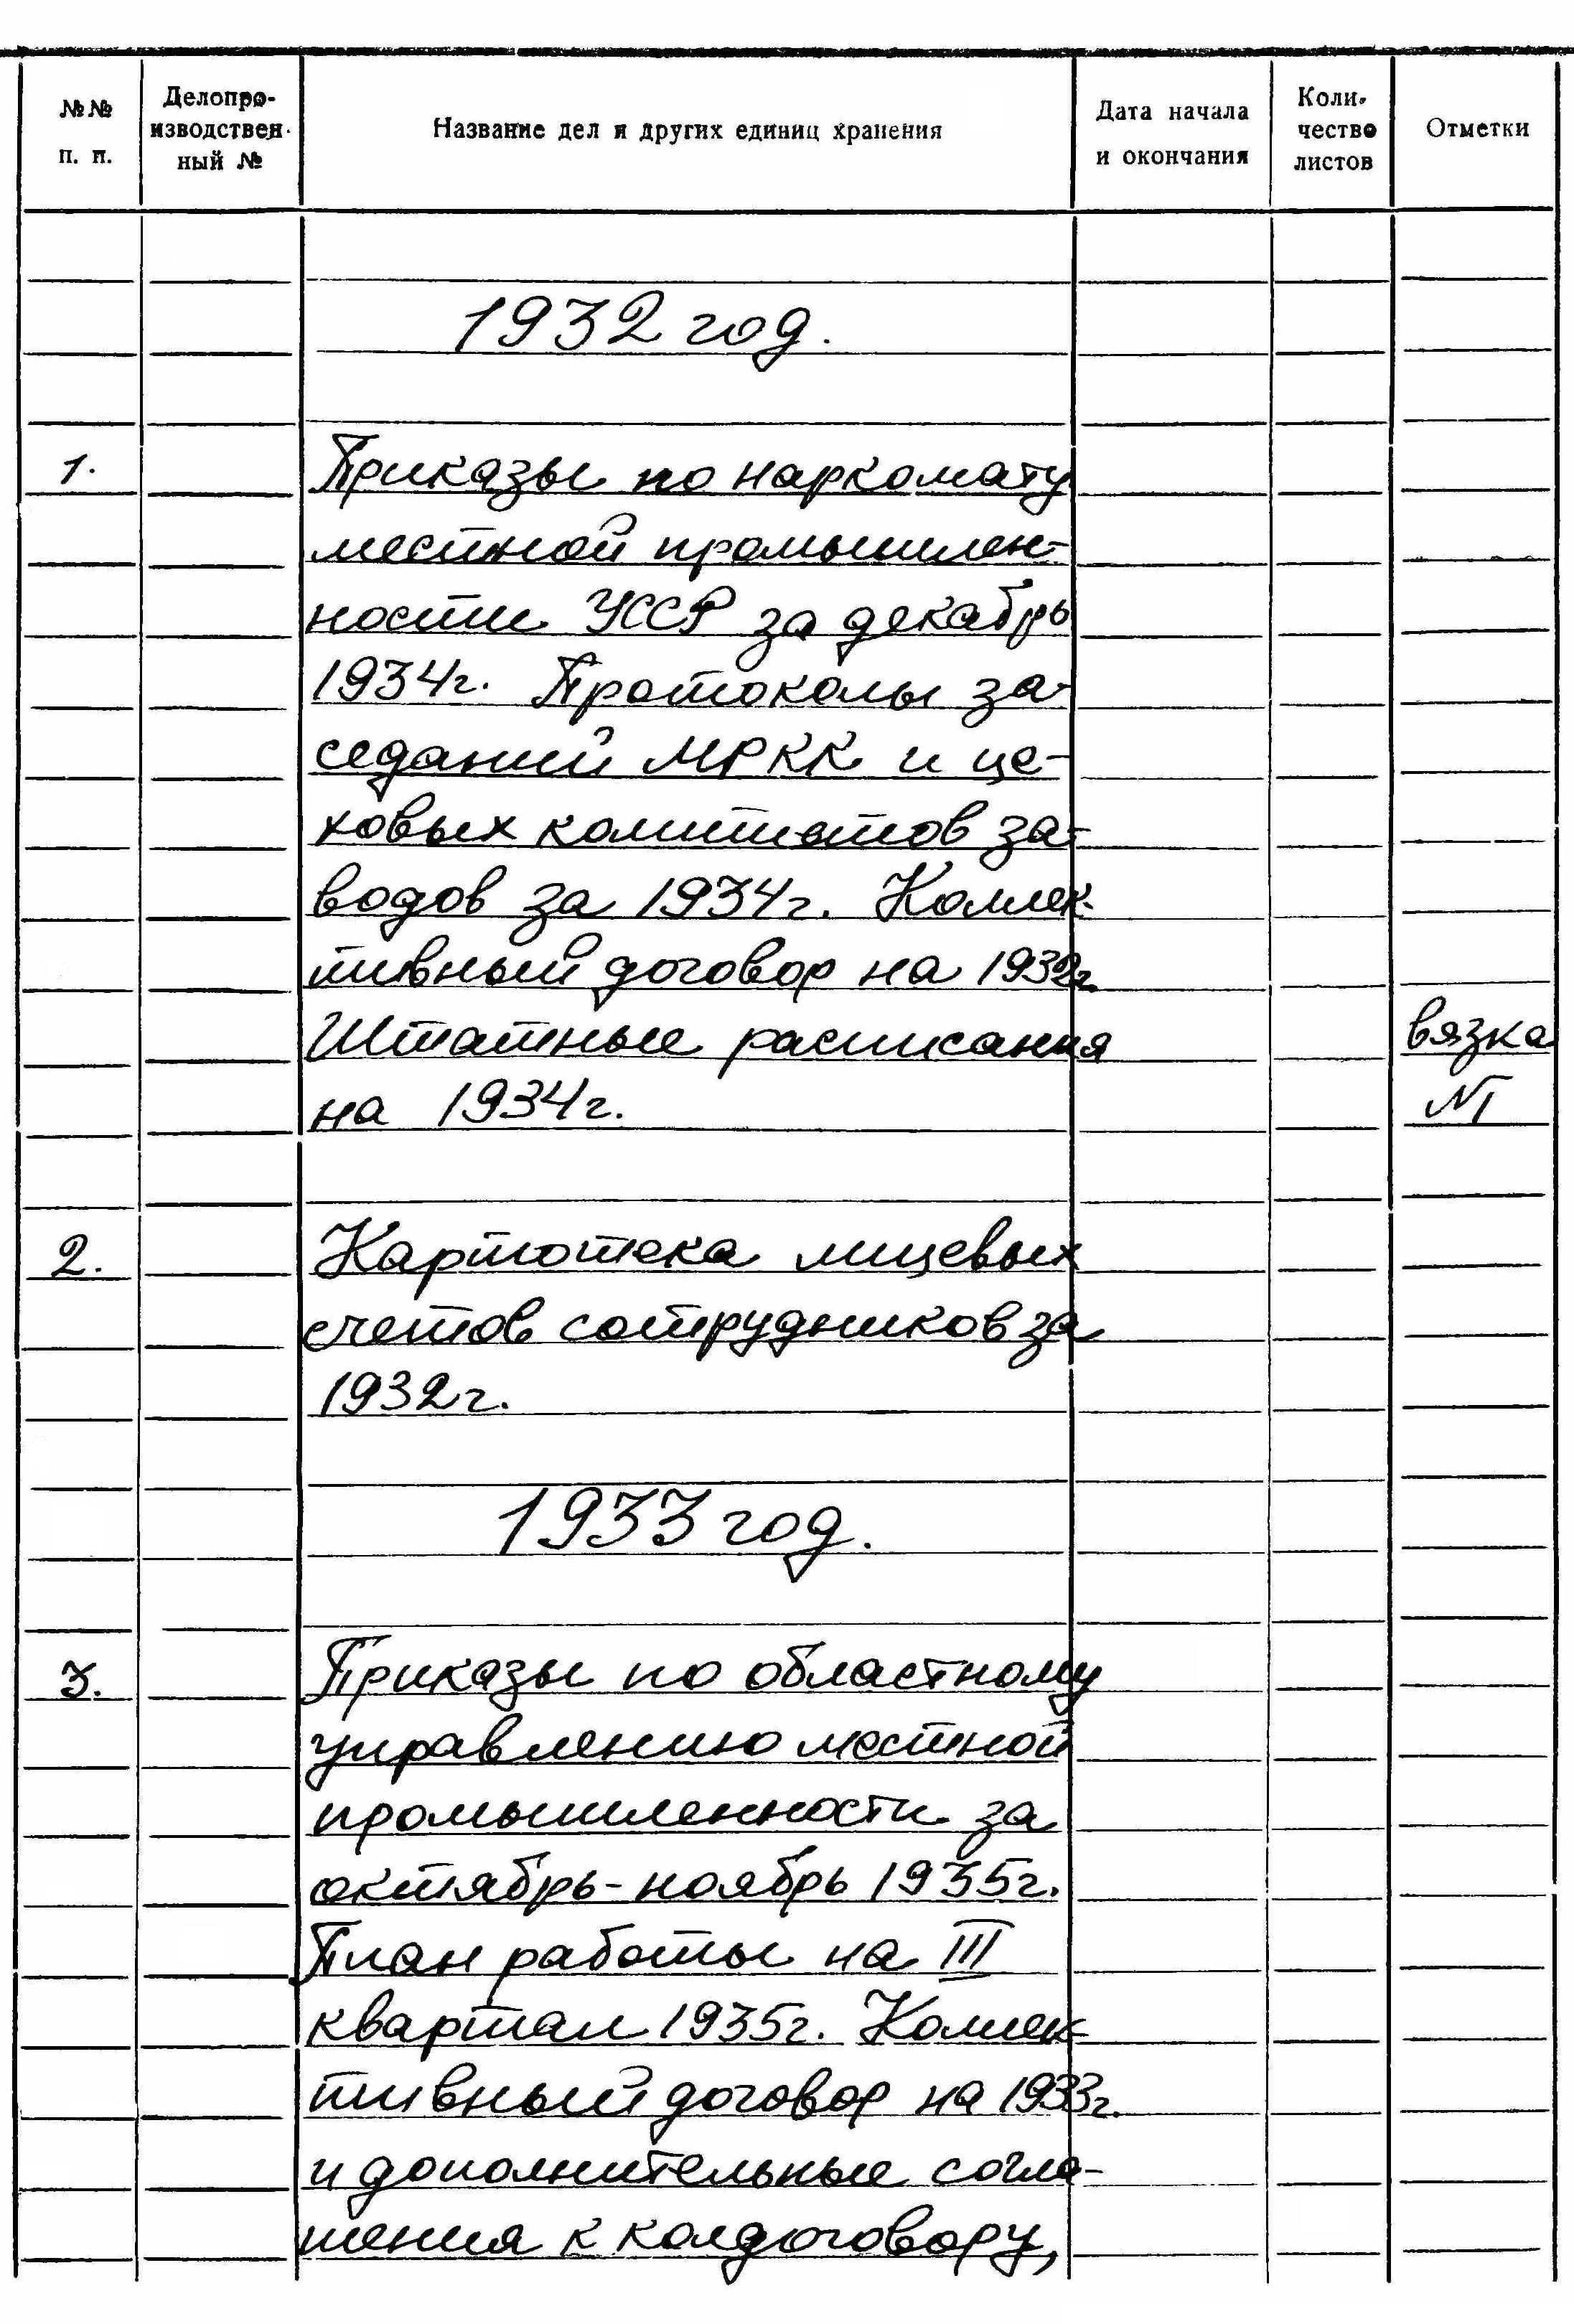 №№ п. п.
Делопро-
изводствен-
ный №
Название дел и других единиц хранения
Дата начала
и окончания
Коли-
чество
листов
Отметки
1932 год.
1. Приказы по наркомату
местной промышлен-
ности УССР за декабрь
1934г. Протоколы за-
седаний МРКК и це-
ховых комитетов за-
водов за 1934г. Коллек-
тивный договор на 1932г.
Штатные расписания вязка
на 1934г. №1
2. Картотека лицевых
счетов сотрудников за
1932г.
1933 год.
3. Приказы по областному
управлению местной
промышленности за
октябрь-ноябрь 1935г.
План работы на III
квартал 1935г. Коллек-
тивный договор на 1933г.
и дополнительные согла-
шения к колдоговору,